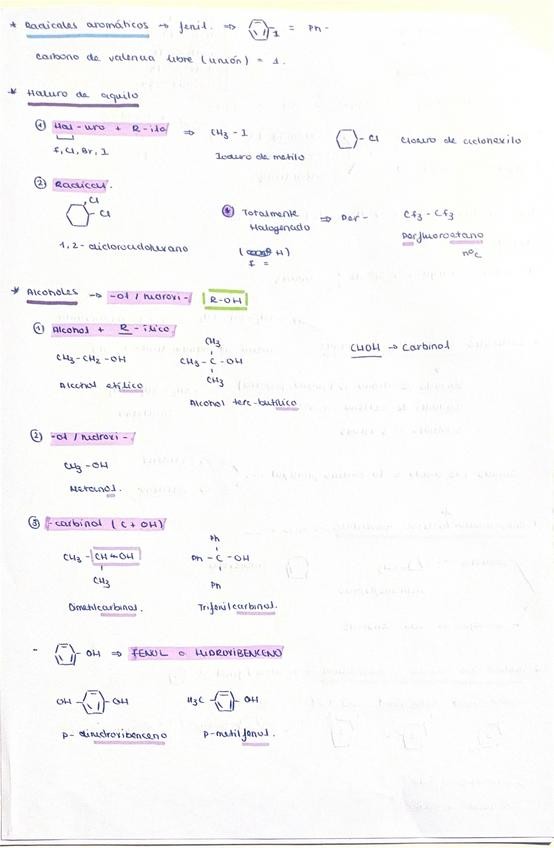 * Radicales aromáticos → fenil. ⇒ 1 = Ph-
carbono de valencia libre (unión) = 1.
* Haluro de alquilo
① Hal-uro + R-ilo ⇒ CH3-I
F, Cl, Br, I
Ioduro de metilo
Cl Cloruro de ciclohexilo
② Radical.
Cl
Cl
1,2-diclorociclohexano
* Totalmente Halogenado ⇒ Per- CF3-CF3
Perfluoroetano
nºC
* Alcoholes → -ol / hidroxi- R-OH
① Alcohol + R-ílico
CH3-CH2-OH
Alcohol etílico
CH3
CH3-C-OH
CH3
Alcohol terc-butílico
CHOH → Carbinol
② -ol / hidroxi-
CH3-OH
Metanol.
③ -carbinol (C + OH)
CH3-CH-OH
CH3
Dimetilcarbinol.
Ph
Ph-C-OH
Ph
Trifenilcarbinol.
- OH ⇒ FENOL o HIDROXIBENCENO
OH OH
p-dihidroxibenceno
H3C OH
p-metilfenol.